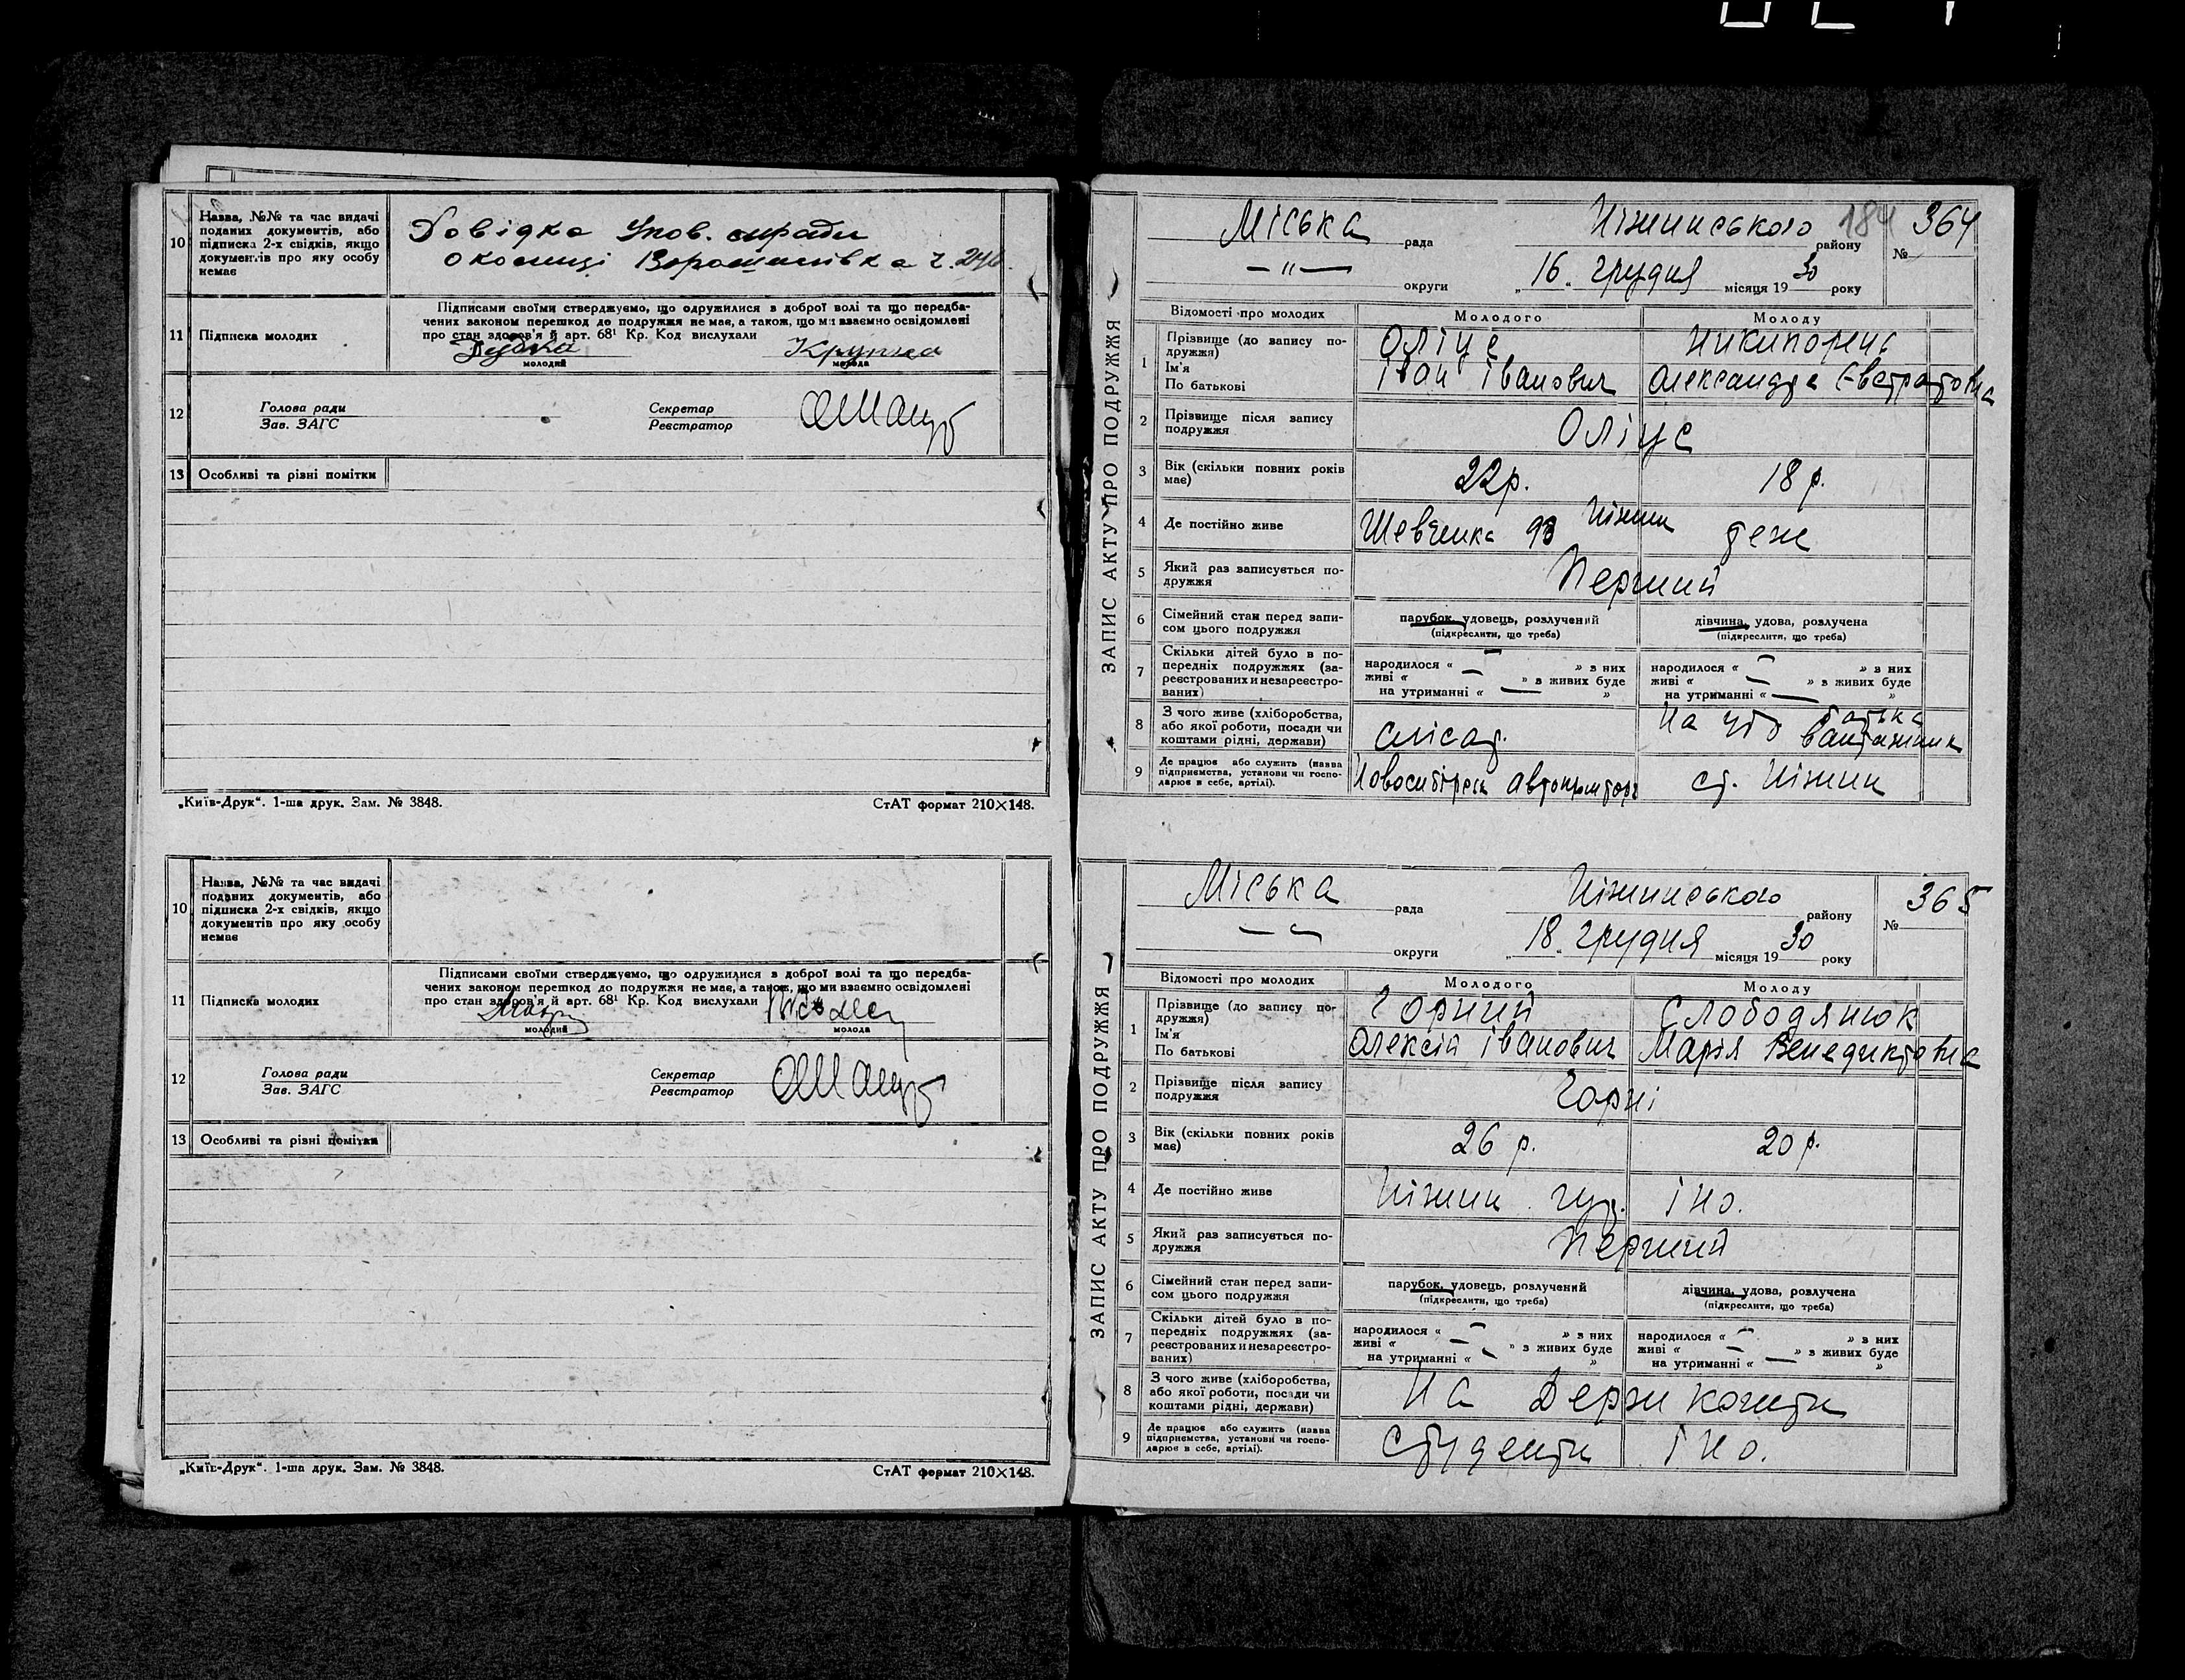 10
Назва, №№ та час видачі
поданих документів, або
підписка 2-х свідків, якщо
документів про яку особу
немає
Довідка Упов. сиради
околиці Ворошилівка ч.
11
Підписка молодих
Підписами своїми стверджуємо, що одружилися в доброї волі та що передба-
чених законом перешкод до подружжя немає, а також, що ми взаємно освідомлені
про стан здоров'я й арт. 68¹ Кр. Код вислухали
Крупка
молодий
молода
12
Голова ради
Зав. ЗАГС
Секретар
Реєстратор
13
Особливі та різні помітки
„Київ-Друк“. 1-ша друк. Зам. № 3848.
СтАТ формат 210×148.
10
Назва, №№ та час видачі
поданих документів, або
підписка 2-х свідків, якщо
документів про яку особу
немає
11
Підписка молодих
Підписами своїми стверджуємо, що одружилися в доброї волі та що передба-
чених законом перешкод до подружжя немає, а також, що ми взаємно освідомлені
про стан здоров'я й арт. 68¹ Кр. Код вислухали
молодий
молода
12
Голова ради
Зав. ЗАГС
Секретар
Реєстратор
13
Особливі та різні помітки
„Київ-Друк“. 1-ша друк. Зам. № 3848.
СтАТ формат 210×148.
ЗАПИС АКТУ ПРО ПОДРУЖЖЯ
Міська рада Ніжинського району 184 № 364
— " — округи „16„ грудня місяця 1930 року
Відомості про молодих
Молодого
Молоду
1
Прізвище (до запису по-
дружжя)
Ім'я
По батькові
Оліус
Іван Іванович
Никипорець
Олександра Євстратовна
2
Прізвище після запису
подружжя
Оліус
3
Вік (скільки повних років
має)
22р.
18 р.
4
Де постійно живе
Шевченка 93 Ніжин
теж
5
Який раз записується по-
дружжя
Перший
6
Сімейний стан перед запи-
сом цього подружжя
парубок, удовець, розлучений
(підкреслити, що треба)
дівчина, удова, розлучена
(підкреслити, що треба)
7
Скільки дітей було в по-
передніх подружжях (за-
реєстрованих и незареєстро-
ваних)
народилося « — » з них
живі « — » з живих буде
на утриманні « — »
народилося « — » з них
живі « — » з живих буде
на утриманні « — »
8
З чого живе (хліборобства,
або якої роботи, посади чи
коштами рідні, держави)
слюсар.
На утр батька
вантажник
9
Де працює або служить (назва
підприємства, установи чи госпо-
дарює в себе, артілі).
Новосибірськ автопромторг
ст. Ніжин
ЗАПИС АКТУ ПРО ПОДРУЖЖЯ
Міська рада Ніжинського району № 365
— " — округи „18„ грудня місяця 1930 року
Відомості про молодих
Молодого
Молоду
1
Прізвище (до запису по-
дружжя)
Ім'я
По батькові
Горний
Олексій Іванович
Слободянюк
Марія Венедиктовна
2
Прізвище після запису
подружжя
Горні
3
Вік (скільки повних років
має)
26 р.
20 р.
4
Де постійно живе
Ніжин гур. ІНО.
5
Який раз записується по-
дружжя
Перший
6
Сімейний стан перед запи-
сом цього подружжя
парубок, удовець, розлучений
(підкреслити, що треба)
дівчина, удова, розлучена
(підкреслити, що треба)
7
Скільки дітей було в по-
передніх подружжях (за-
реєстрованих и незареєстро-
ваних)
народилося « — » з них
живі « — » з живих буде
на утриманні « — »
народилося « — » з них
живі « — » з живих буде
на утриманні « — »
8
З чого живе (хліборобства,
або якої роботи, посади чи
коштами рідні, держави)
На Держ кошти
9
Де працює або служить (назва
підприємства, установи чи госпо-
дарює в себе, артілі).
Студенти ІНО.